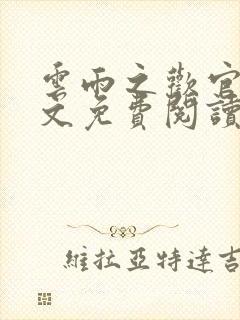 雲雨之歡官
文免費閱讀
維拉亞特達吉